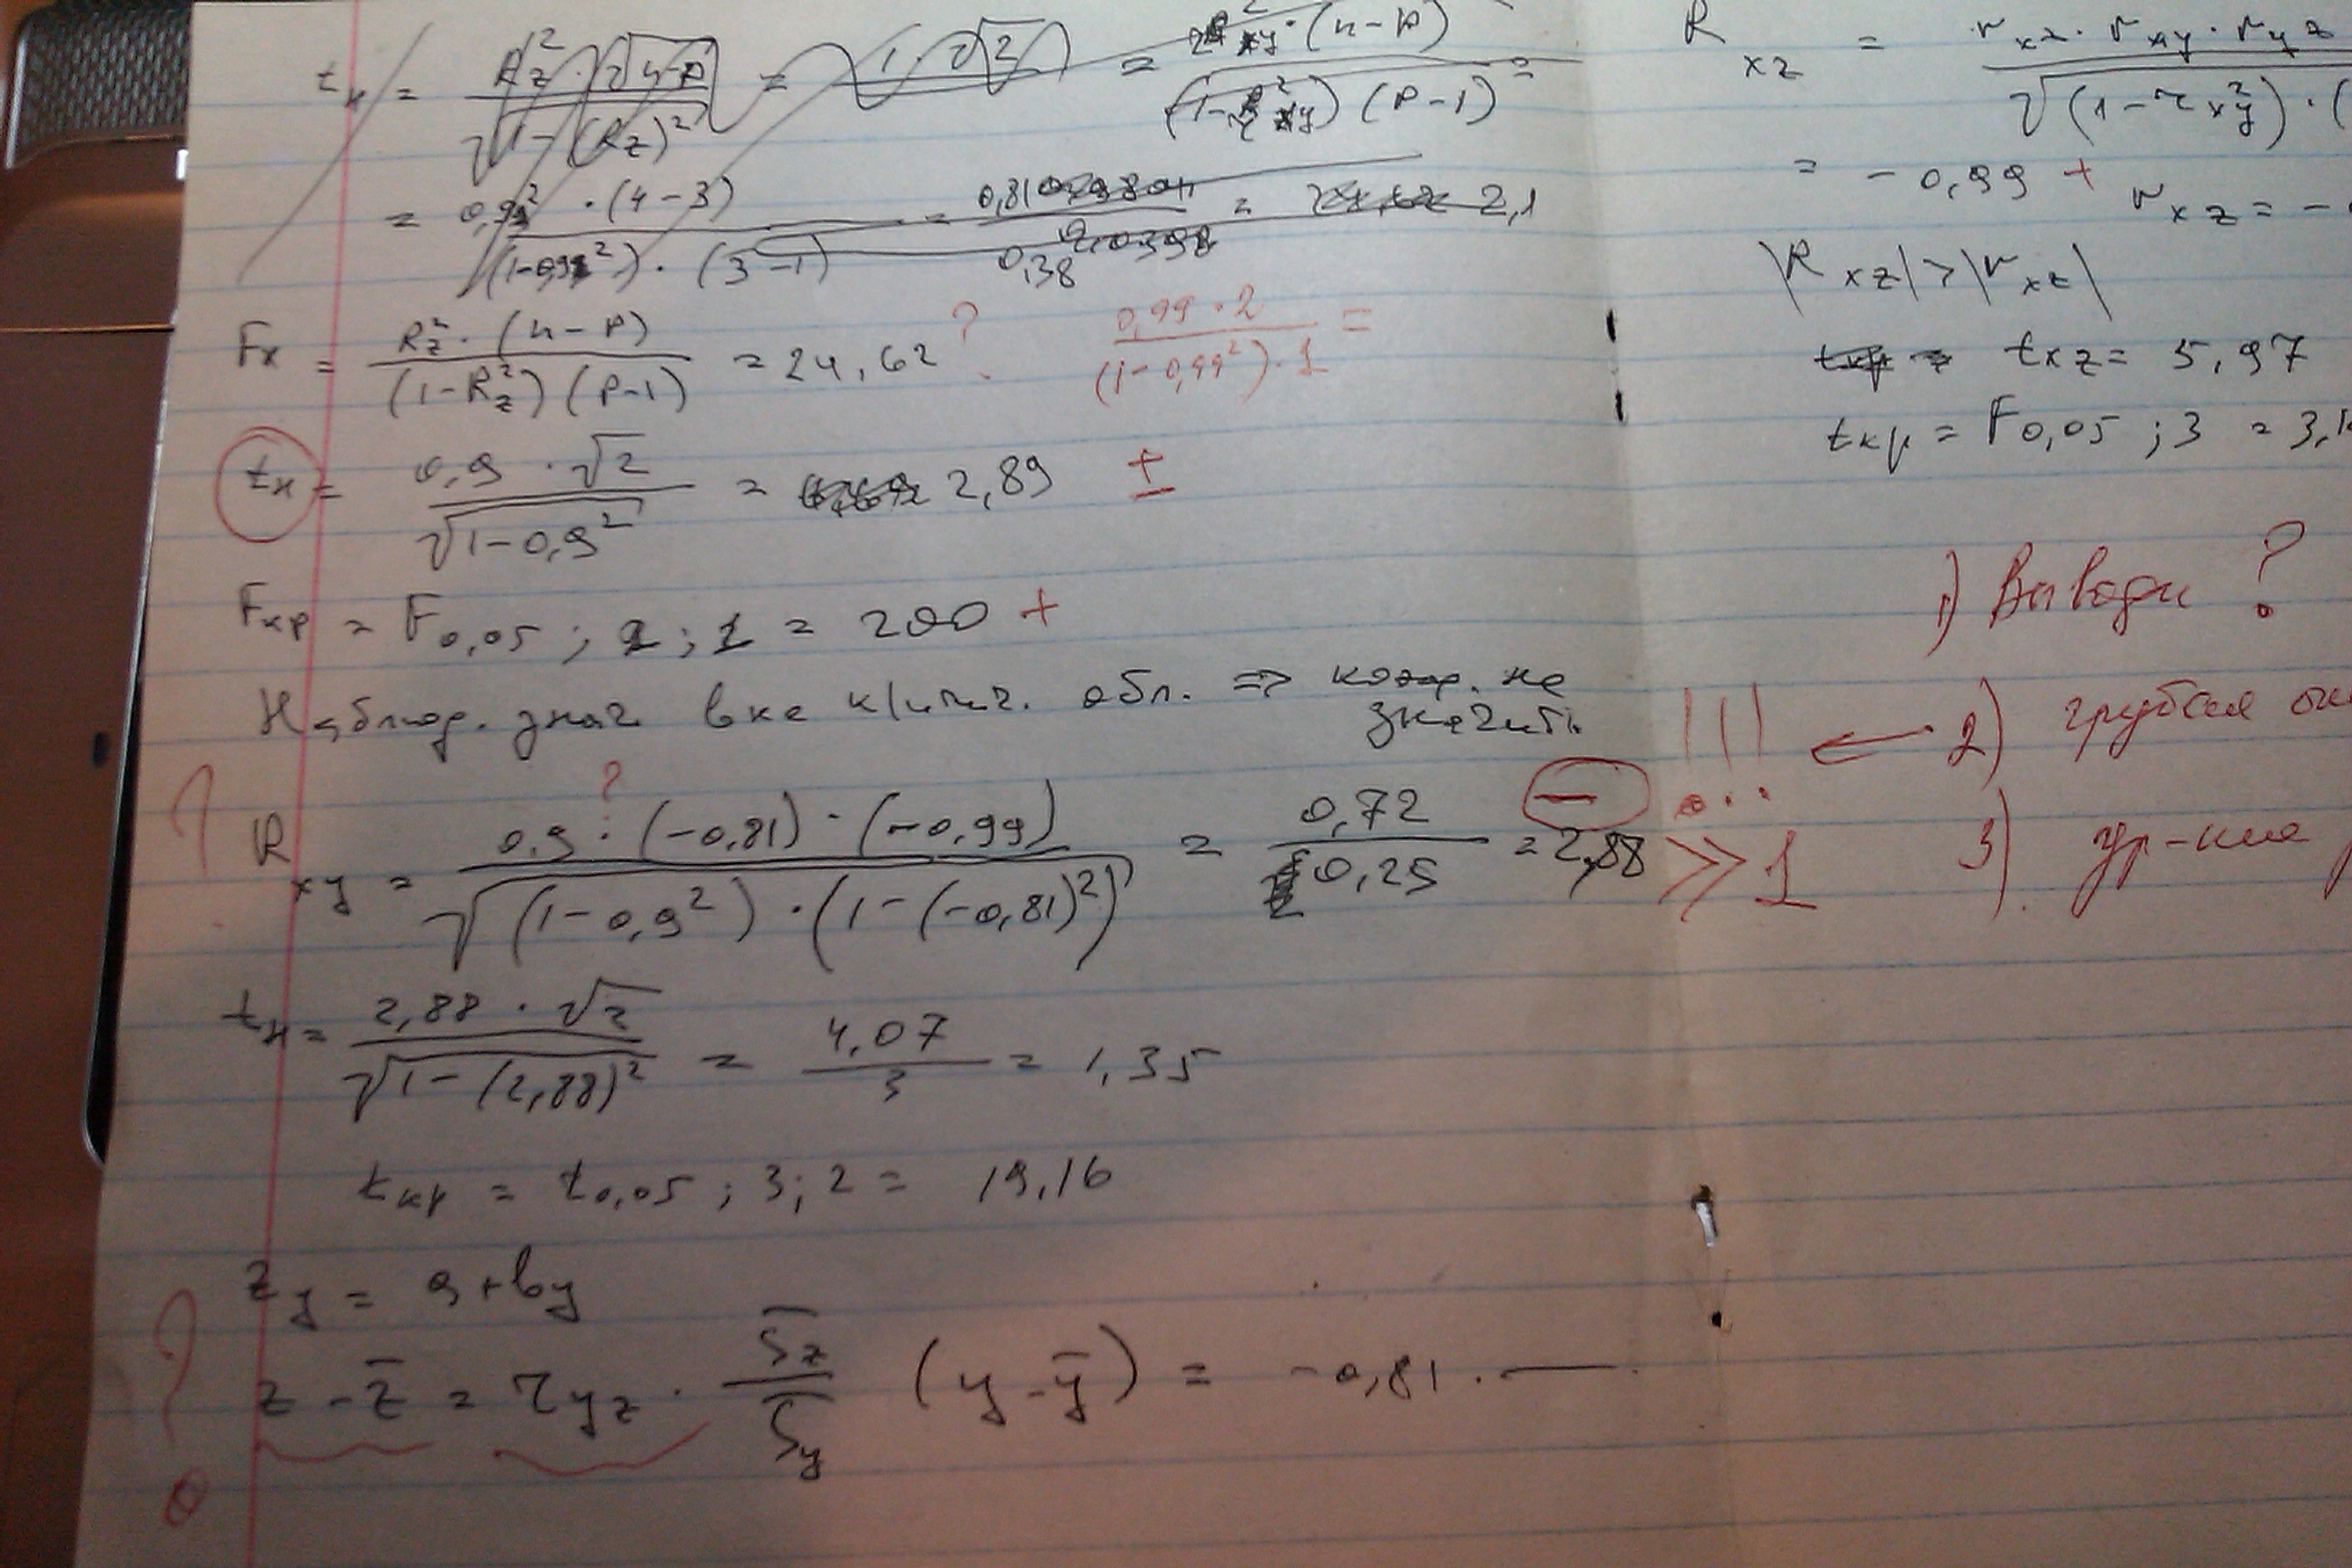 tн = Rz² · √n-p / √1-(Rz)² = 1·√2 = r²xy · (n-p) / (1-r²xy)(p-1) =
= 0,9² · (4-3) / (1-0,9²) · (3-1) = 0,81 / 0,38 = 2,1
Fн = Rz² · (n-p) / (1-Rz²)(p-1) = 24,62 ? 0,99·2 / (1-0,99²)·1 =
tн = 0,9 · √2 / √1-0,9² = 2,89 ±
Fкр = F0,05 ; 2 ; 1 = 200 +
Наблюд. знач вне критич. обл. => коэф. не
значит.
? Rxy = 0,9 · (-0,81) · (-0,99) / √(1-0,9²) · (1-(-0,81)²) = 0,72 / 0,25 = 2,88 !!! >> 1
?
tн = 2,88 · √2 / √1-(2,88)² = 4,07 / 3 = 1,35
tкр = t0,05 ; 3 ; 2 = 19,16
zy = a + by
? z - z̄ = ryz · Sz / Sy (y - ȳ) = -0,81 · —
Rxz = rxz · rxy · ryz / √(1-rxy²) · (
= -0,99 +
rxz = -
|Rxz| > |rxz|
txz = 5,97
tкр = F0,05 ; 3 = 3,1
1) Выводы ?
2) грубая ош
3) ур-ние р